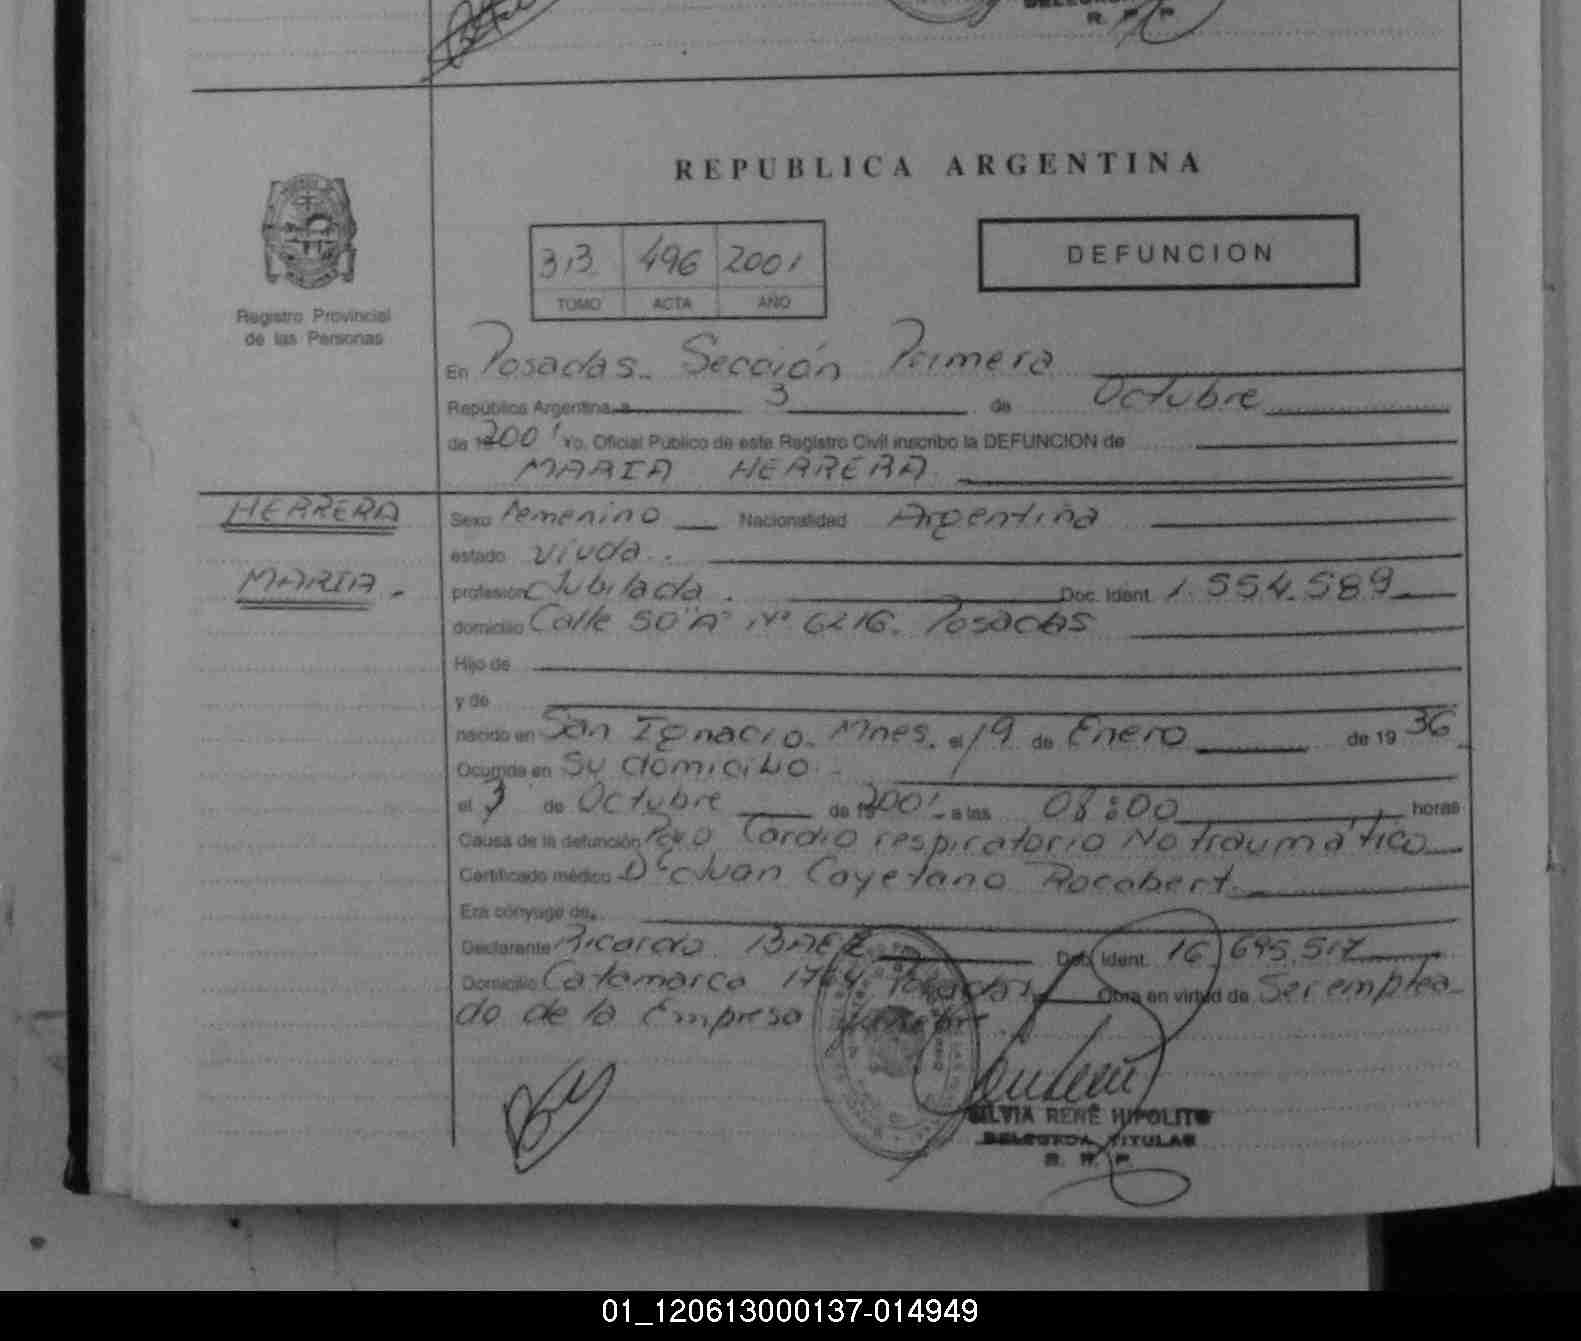 R. P. P.
REPUBLICA ARGENTINA
313 496 2001
TOMO ACTA AÑO
DEFUNCION
Registro Provincial
de las Personas
En Posadas. Sección Primera
República Argentina, a 3 de Octubre
de 2001 Yo, Oficial Público de este Registro Civil inscribo la DEFUNCION de
MARIA HERRERA
HERRERA
MARIA.-
Sexo Femenino Nacionalidad Argentina
estado viuda.
profesión Jubilada. Doc. Ident. 1.554.589
domicilio Calle 50 "A" Nº 6216. Posadas
Hijo de
y de
nacido en San Ignacio. Mnes. el 19 de Enero de 1936
Ocurrida en Su domicilio
el 3 de Octubre de 2001 a las 08:00 horas
Causa de la defunción Paro Cardio respiratorio No traumático
Certificado médico Dr Juan Cayetano Rocabert
Era cónyuge de
Declarante Ricardo BAEZ Doc. Ident. 16.695.517
Domicilio Catamarca 1764 Posadas Obra en virtud de Ser emplea-
do de la Empresa funebre
SILVIA RENÉ HIPOLITO
DELEGADA TITULAR
R. P. P.
01_120613000137-014949